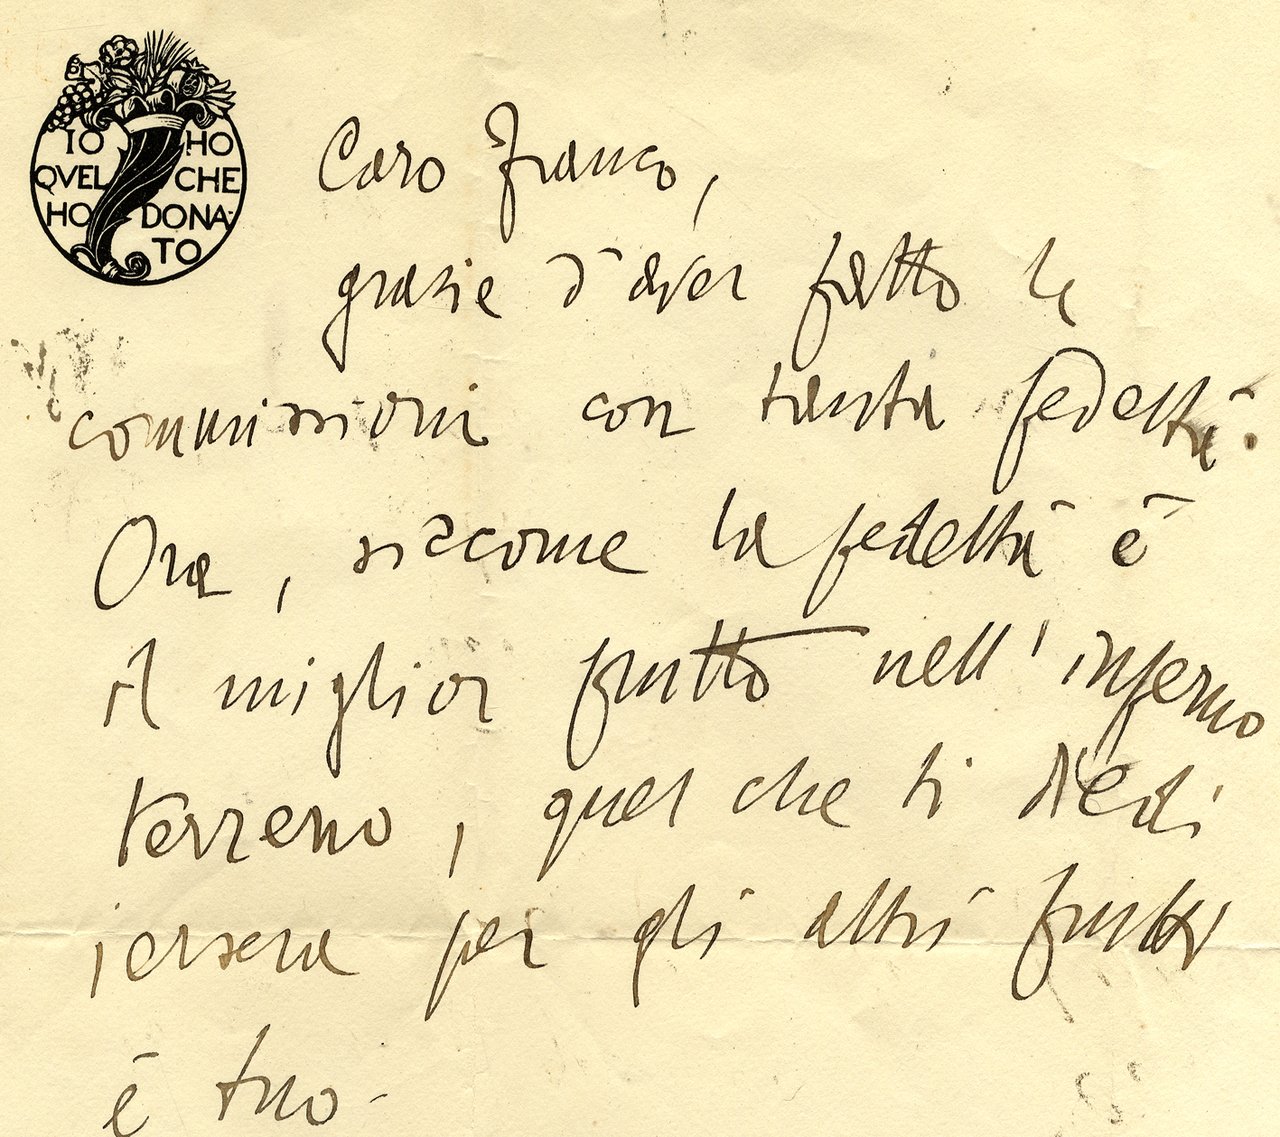 IO HO
QVEL CHE
HO DONA-
TO
Caro Franco,
grazie d'aver fatto le
commissioni con tanta fedeltà.
Ora, siccome la fedeltà è
il miglior frutto nell'inferno
terreno, quel che ti diedi
iersera per gli altri frutti
è tuo-